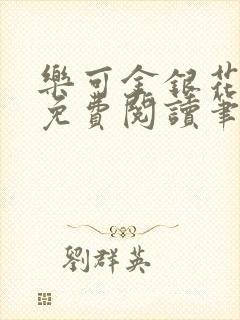 樂可金銀花
免費閱讀筆
劉群英